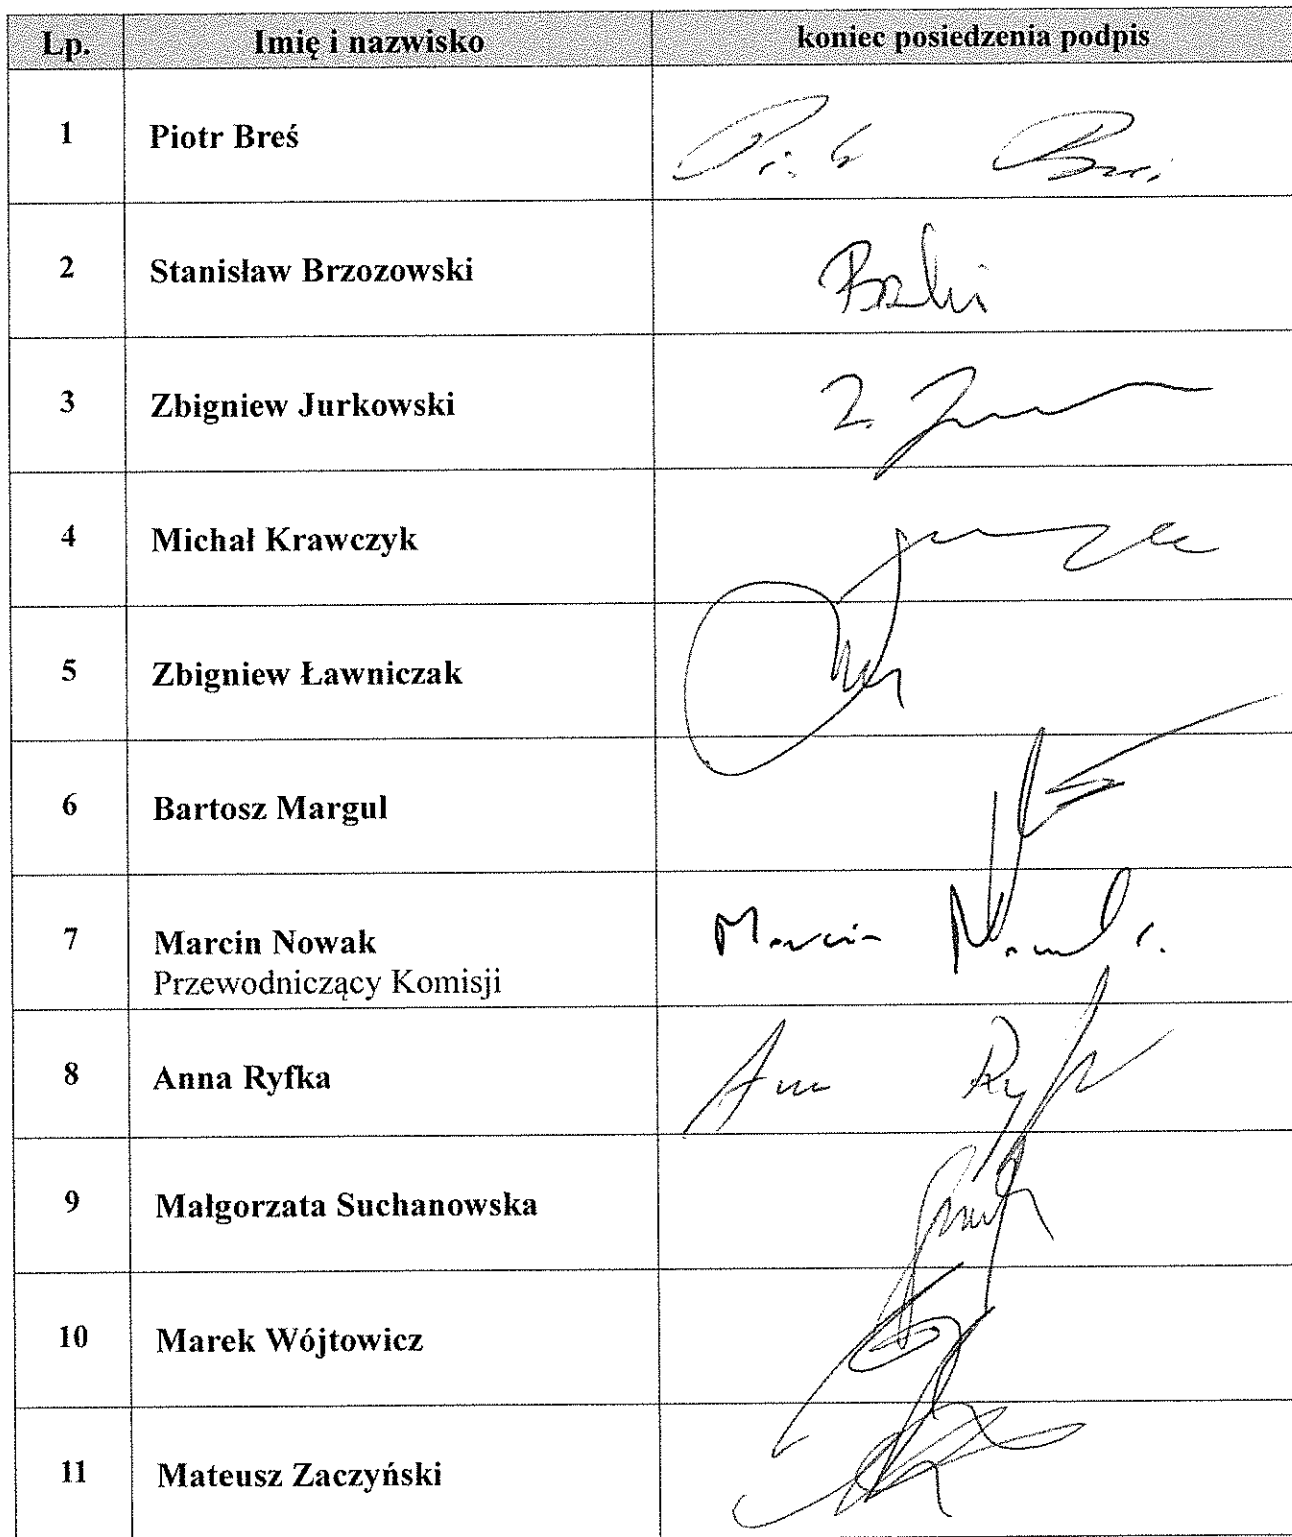 Lp. Imię i nazwisko koniec posiedzenia podpis
1 Piotr Breś
2 Stanisław Brzozowski
3 Zbigniew Jurkowski
4 Michał Krawczyk
5 Zbigniew Ławniczak
6 Bartosz Margul
7 Marcin Nowak Marcin Nowak
Przewodniczący Komisji
8 Anna Ryfka
9 Małgorzata Suchanowska
10 Marek Wójtowicz
11 Mateusz Zaczyński